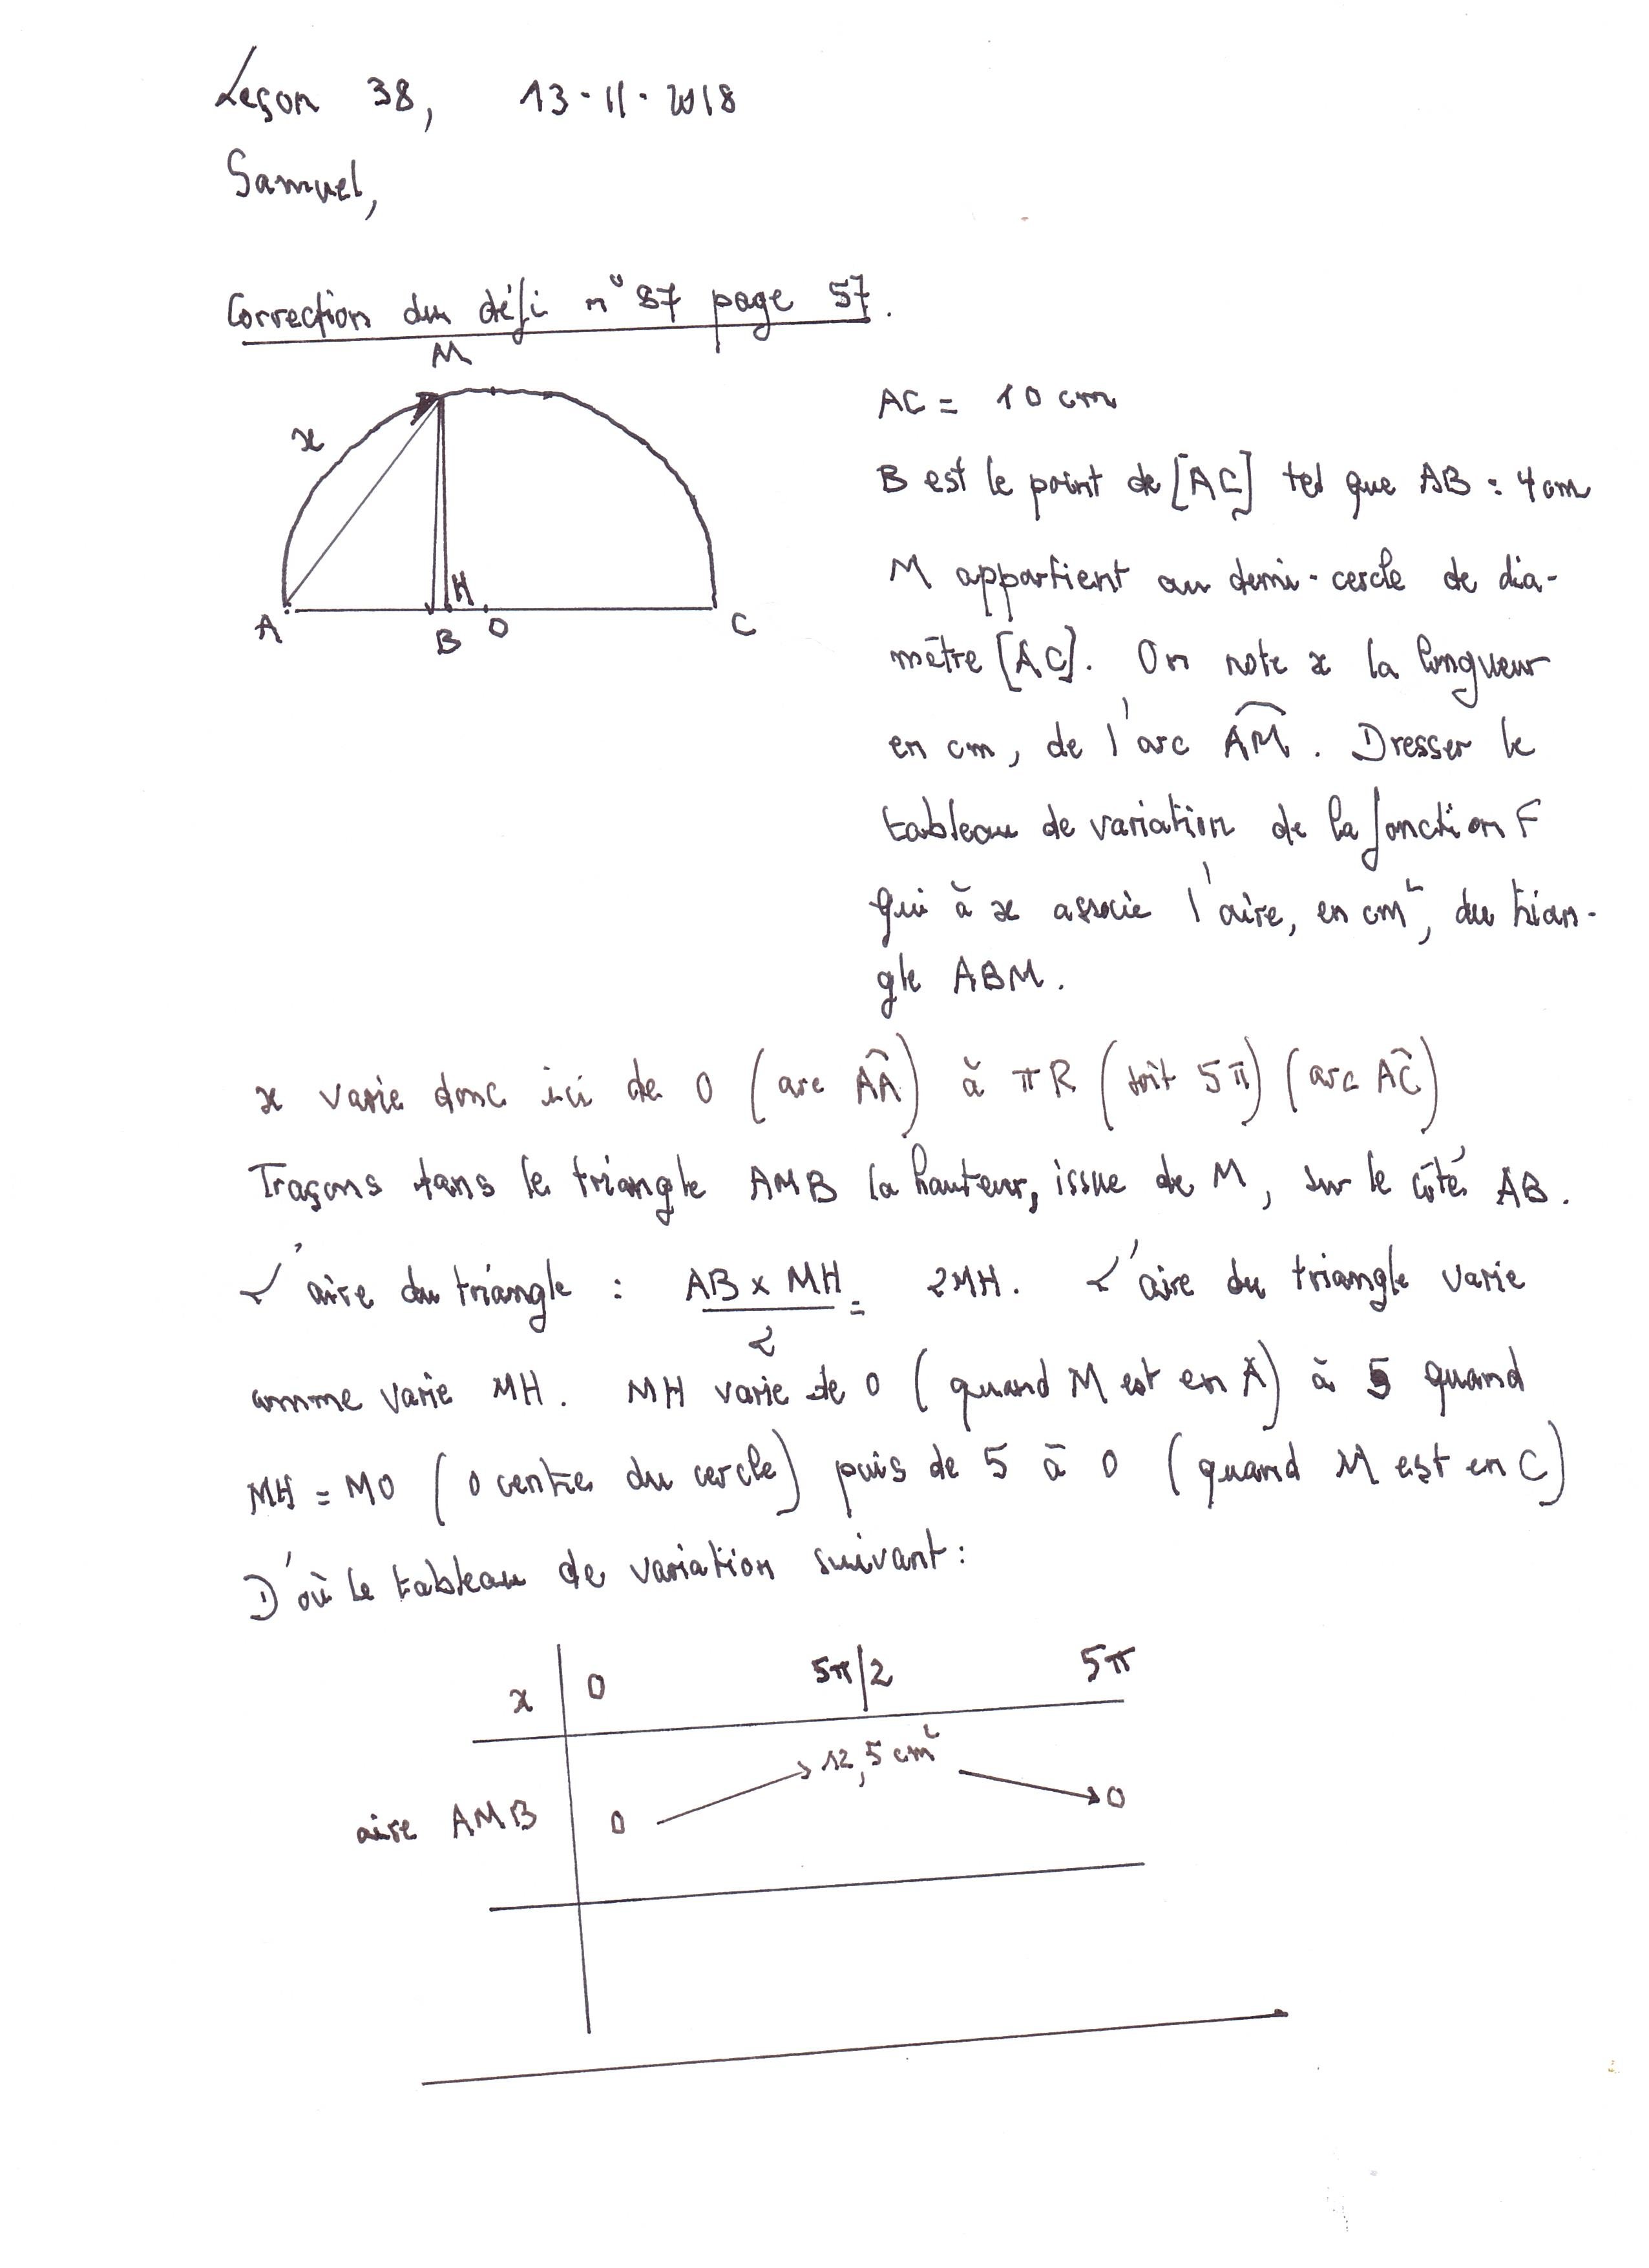 Leçon 38, 13-11-2018
Samuel,
Correction du défi n° 87 page 57.
M
x
H
A B O C
AC = 10 cm
B est le point de [AC] tel que AB = 4 cm
M appartient au demi-cercle de dia-
mètre [AC]. On note x la longueur
en cm, de l'arc AM. Dresser le
tableau de variation de la fonction F
qui à x associe l'aire, en cm², du trian-
gle ABM.
x varie donc ici de 0 (arc AA) à πR (soit 5π) (arc AC)
Traçons dans le triangle AMB la hauteur, issue de M, sur le côté AB.
L'aire du triangle : AB x MH / 2 = 2MH. L'aire du triangle varie
comme varie MH. MH varie de 0 (quand M est en A) à 5 quand
MH = MO (O centre du cercle) puis de 5 à 0 (quand M est en C)
D'où le tableau de variation suivant :
x 0 5π/2 5π
aire AMB 0 12,5 cm² 0